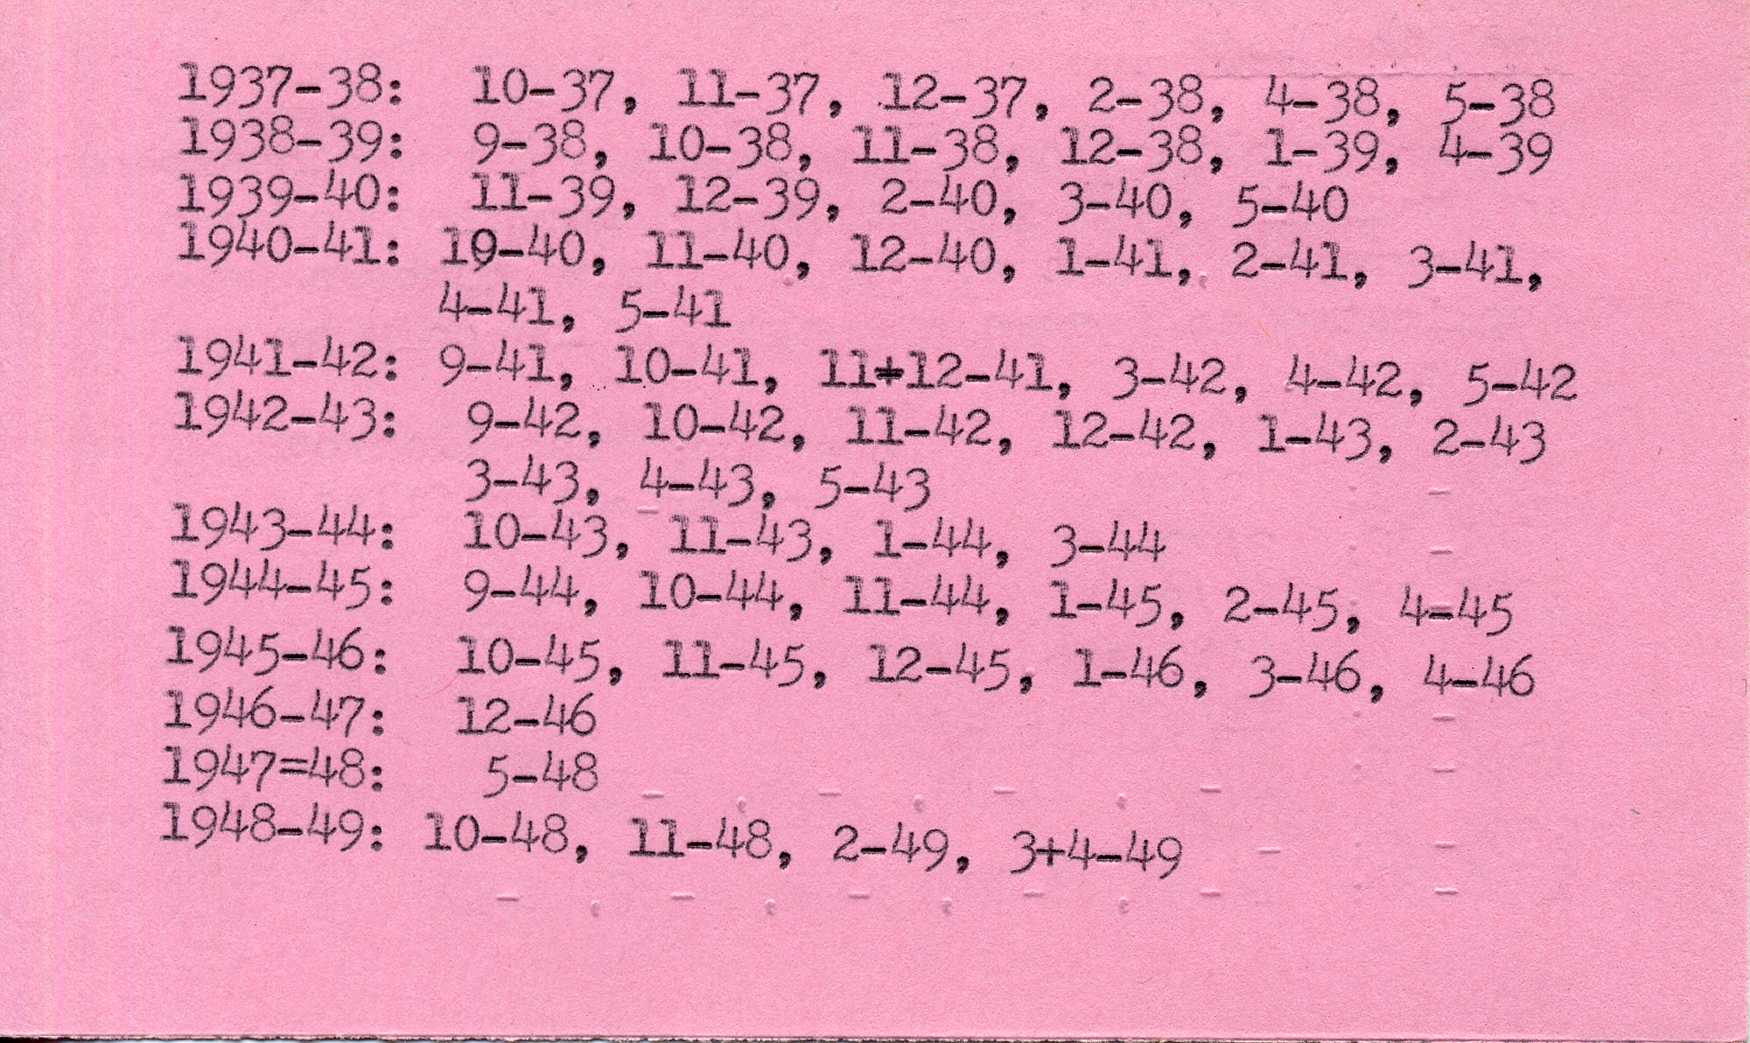 1937-38: 10-37, 11-37, 12-37, 2-38, 4-38, 5-38
1938-39: 9-38, 10-38, 11-38, 12-38, 1-39, 4-39
1939-40: 11-39, 12-39, 2-40, 3-40, 5-40
1940-41: 10-40, 11-40, 12-40, 1-41, 2-41, 3-41,
4-41, 5-41
1941-42: 9-41, 10-41, 11+12-41, 3-42, 4-42, 5-42
1942-43: 9-42, 10-42, 11-42, 12-42, 1-43, 2-43
3-43, 4-43, 5-43
1943-44: 10-43, 11-43, 1-44, 3-44
1944-45: 9-44, 10-44, 11-44, 1-45, 2-45, 4-45
1945-46: 10-45, 11-45, 12-45, 1-46, 3-46, 4-46
1946-47: 12-46
1947=48: 5-48
1948-49: 10-48, 11-48, 2-49, 3+4-49